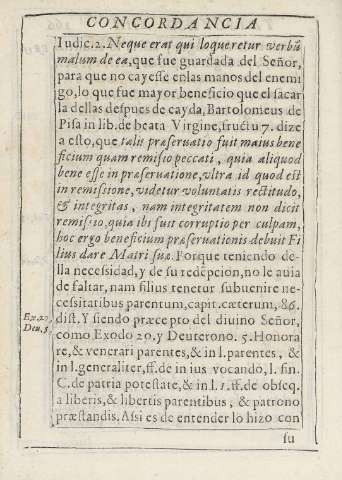 CONCORDANCIA
Iudic. 2. Neque erat qui loqueretur verbũ
malum de ea, que fue guardada del Señor,
para que no cayesse en las manos del enemi
go, lo que fue mayor beneficio que el sacar
la dellas despues de cayda, Bartolomeus de
Pisa in lib. de beata Virgine, fructu 7. dize
a esto, que talis præseruatio fuit maius bene
ficium quam remisio peccati, quia aliquod
bene esse in præseruatione, vltra id quod est
in remissione, videtur voluntatis rectitudo,
& integritas, nam integritatem non dicit
remissio, quia ibi fuit corruptio per culpam,
hoc ergo beneficium præseruationis debuit Fi
lius dare Matri suæ. Porque teniendo de-
lla necessidad, y de su redẽpcion, no le auia
de faltar, nam filius tenetur subuenire ne-
cessitatibus parentum, capit. cæterum, 86.
Exo. 20.
Deu. 5.
dist. Y siendo præcepto del diuino Señor,
como Exodo 20. y Deuterono. 5. Honora
re, & venerari parentes, & in l. parentes, &
in l. generaliter, ff. de in ius vocando, l. fin.
C. de patria potestate, & in l. 1. ff. de obseq.
a liberis, & libertis parentibus, & patrono
præstandis. Assi es de entender lo hizo con
su